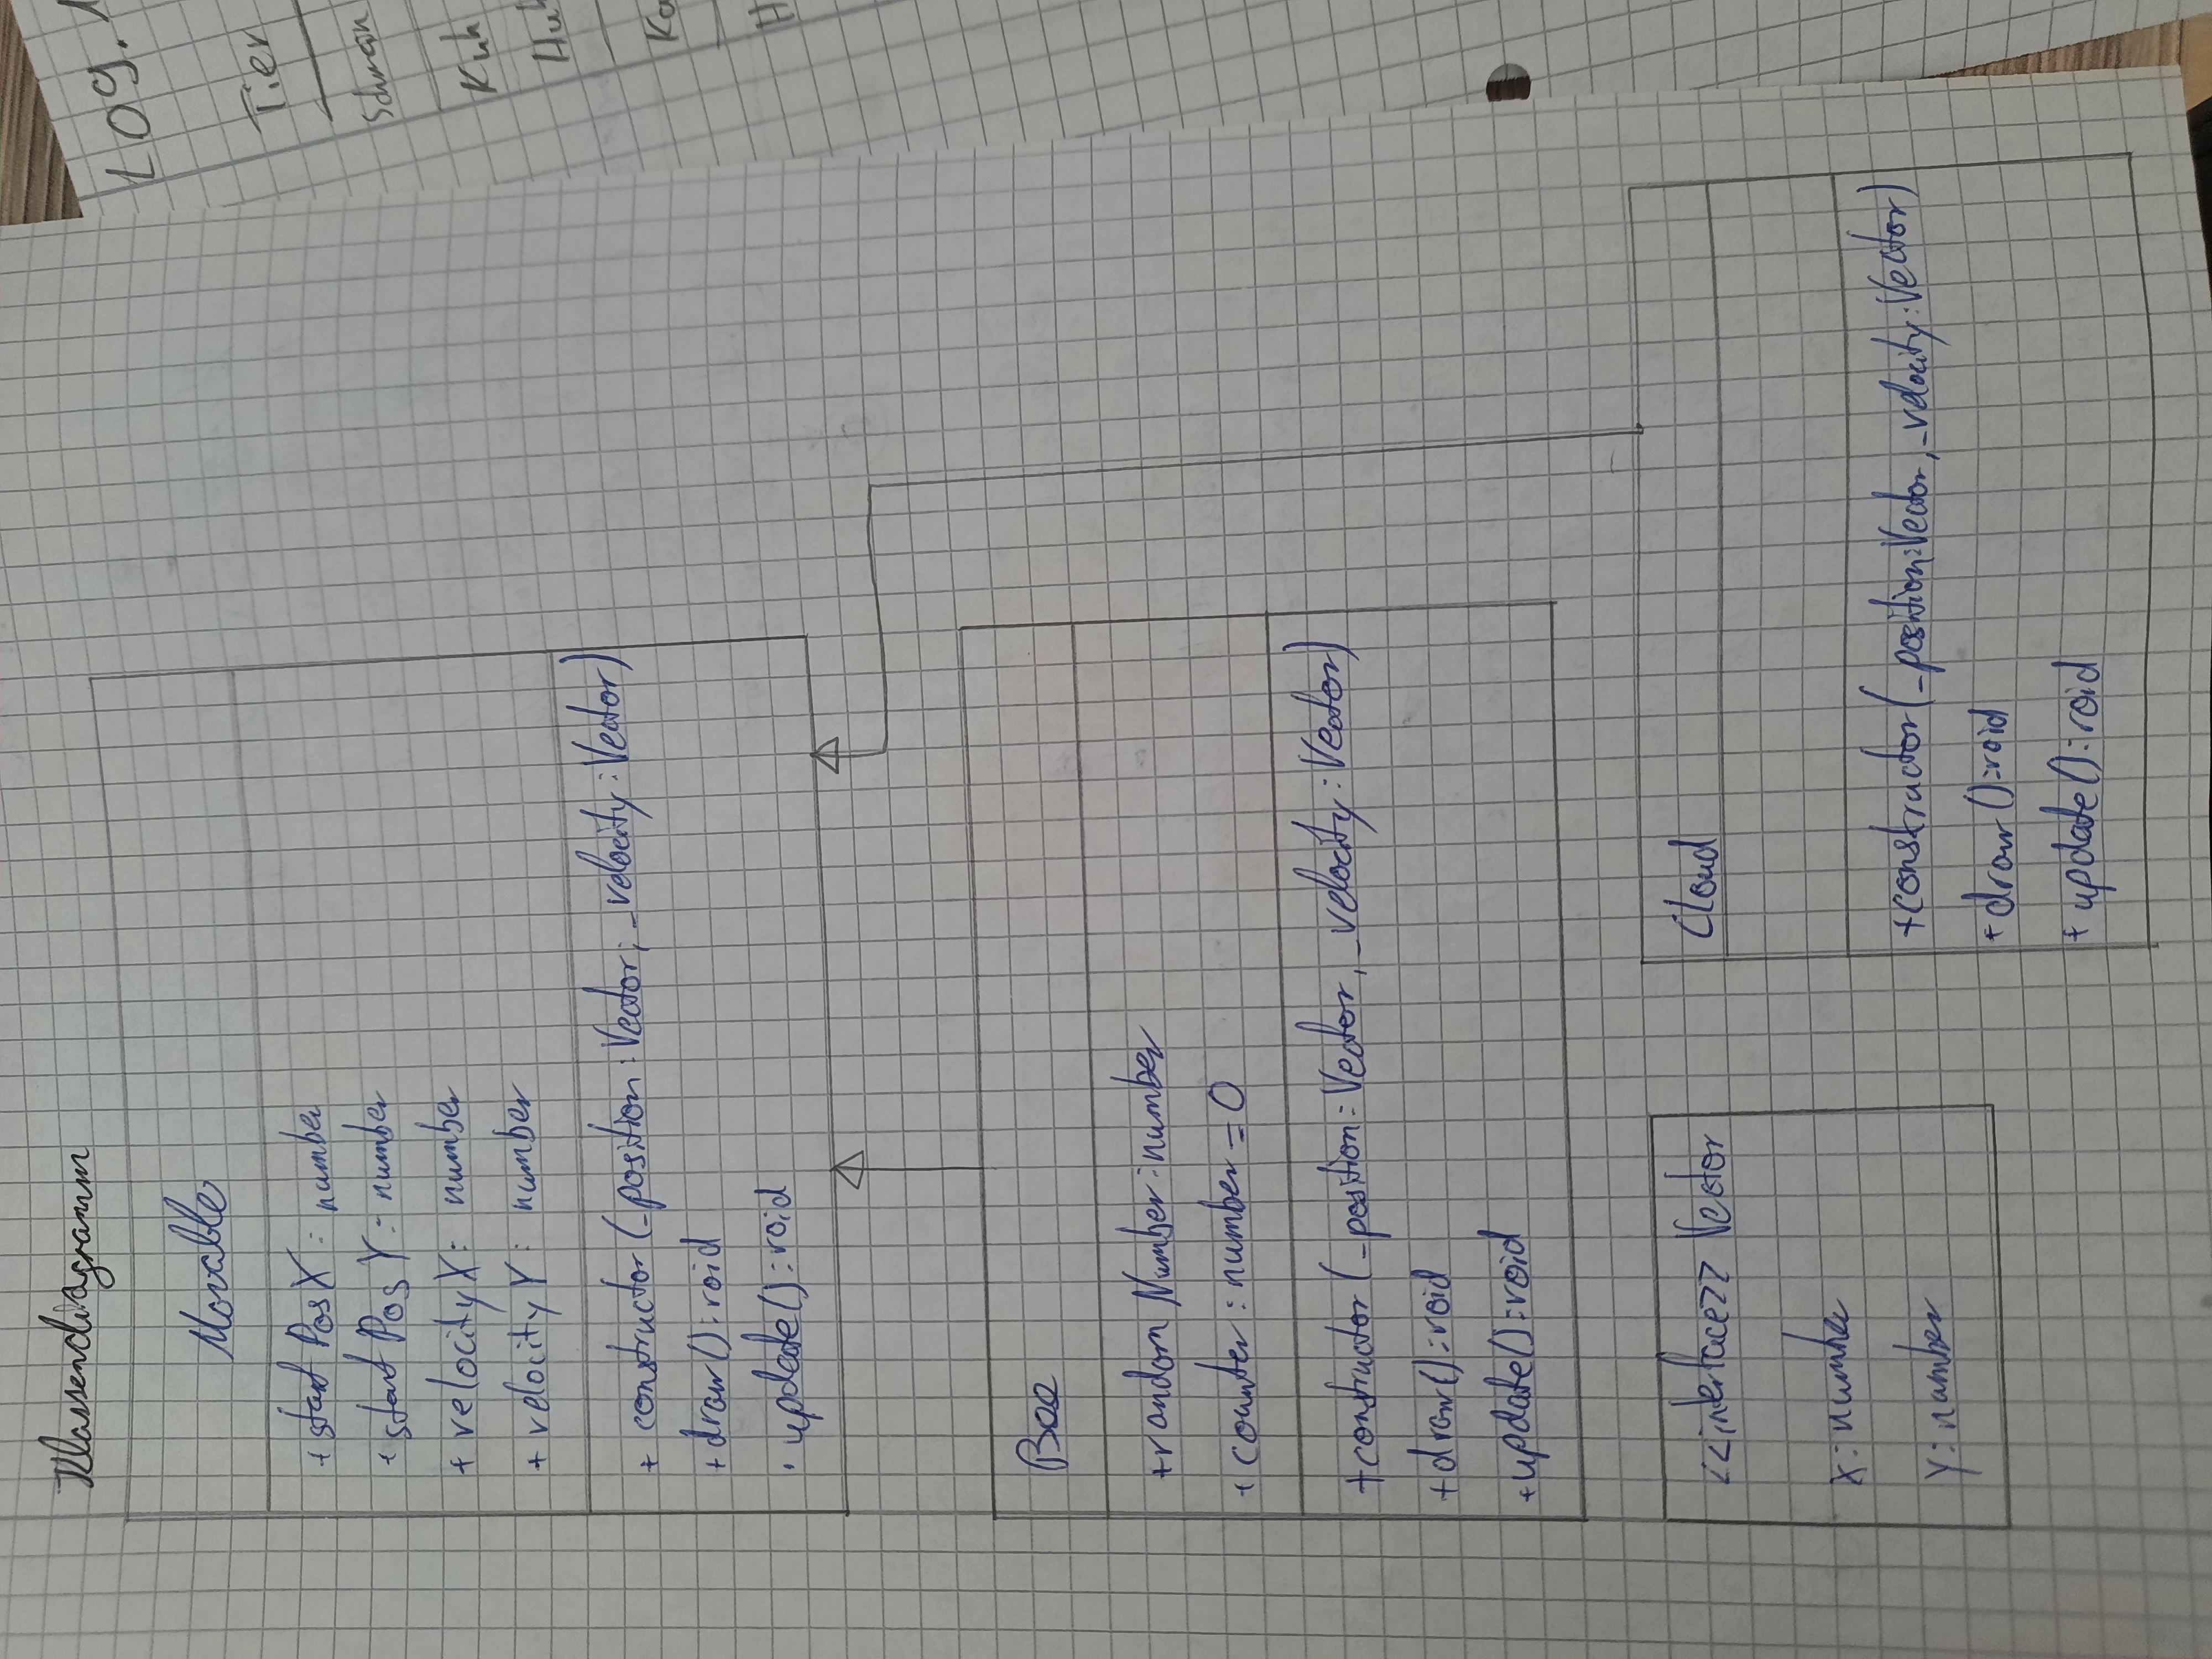 Klassendiagramm
Movable
+ startPosX: number
+ startPosY: number
+ velocityX: number
+ velocityY: number
+ constructor(_position:Vector, _velocity:Vector)
+ draw():void
+ update():void
Bee
+ randomNumber:number
+ counter:number=0
+ constructor(_position:Vector, _velocity:Vector)
+ draw():void
+ update():void
<<interface>> Vector
X: number
Y: number
Cloud
+ constructor(_position:Vector, _velocity:Vector)
+ draw():void
+ update():void
Log.
Tier
Schwein
Kuh